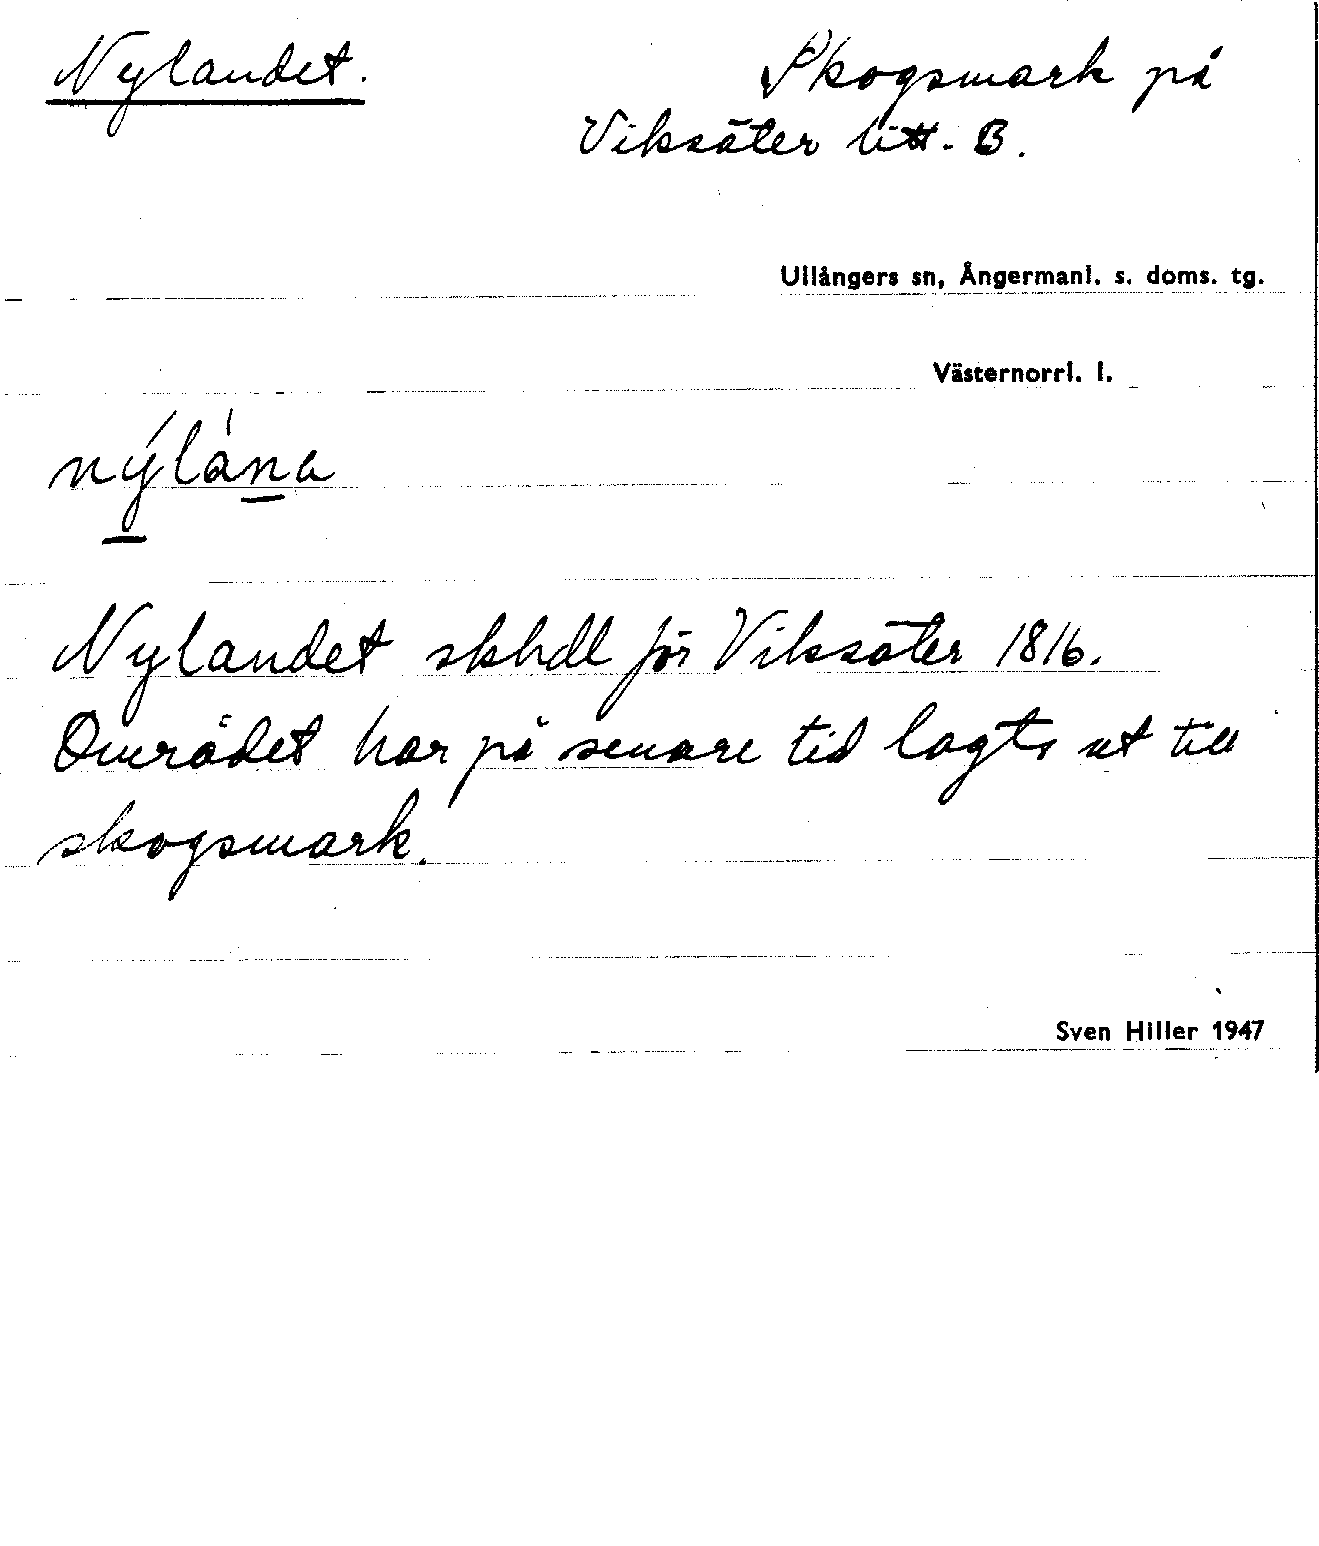 Nylandet. Skogsmark på
Viksäter litt. B.
Ullångers sn, Ångermanl. s. doms. tg.
Västernorrl. l.
nýlàna
Nylandet skhdl för Viksäter 1816.
Området har på senare tid lagts ut till
skogsmark.
Sven Hiller 1947